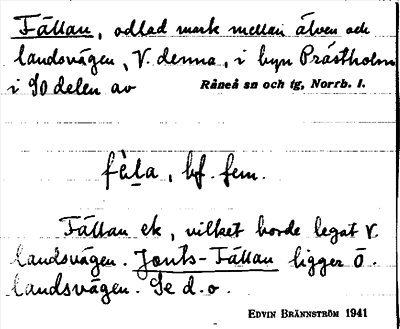 Fällan, odlad mark mellan älven och
landsvägen, V. denna, i byn Prästholm
i SO delen av Råneå sn och tg, Norrb. l.
fèla, bf. fem.
Fällan ek, vilket borde legat V.
landsvägen. Jonts-Fällan ligger Ö.
landsvägen. Se d.o.
EDVIN BRÄNNSTRÖM 1941